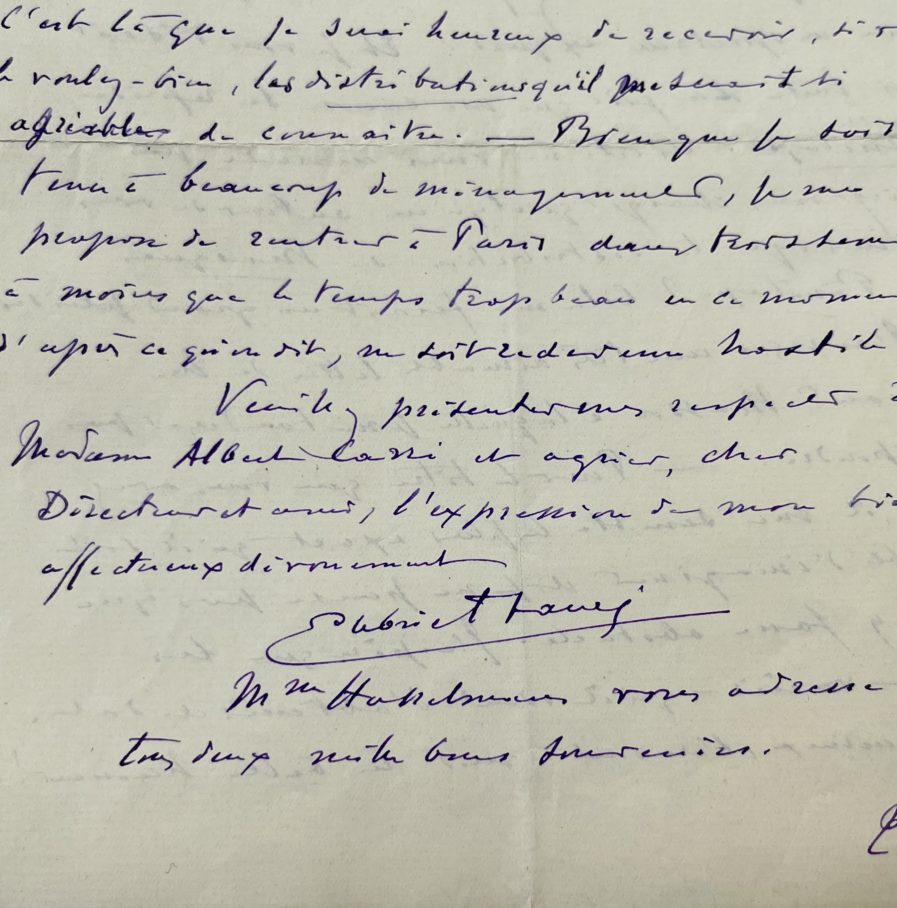 C'est là que je serai heureux de recevoir, si v
le voulez-bien, les distributions qu'il me serait si
agréable de connaître. — Bien que je sois
tenu à beaucoup de ménagements, je me
propose de rentrer à Paris dans trois sem
à moins que le temps trop beau en ce momen
d'après ce qu'on dit, ne soit redevenu hostile
Veuillez présenter mes respects à
Madame Albert Carré et agréer, cher
Directeur et ami, l'expression de mon bie
affectueux dévouement
Gabriel Fauré
Mme Hasselmans vous adresse
tous deux mille bons souvenirs.